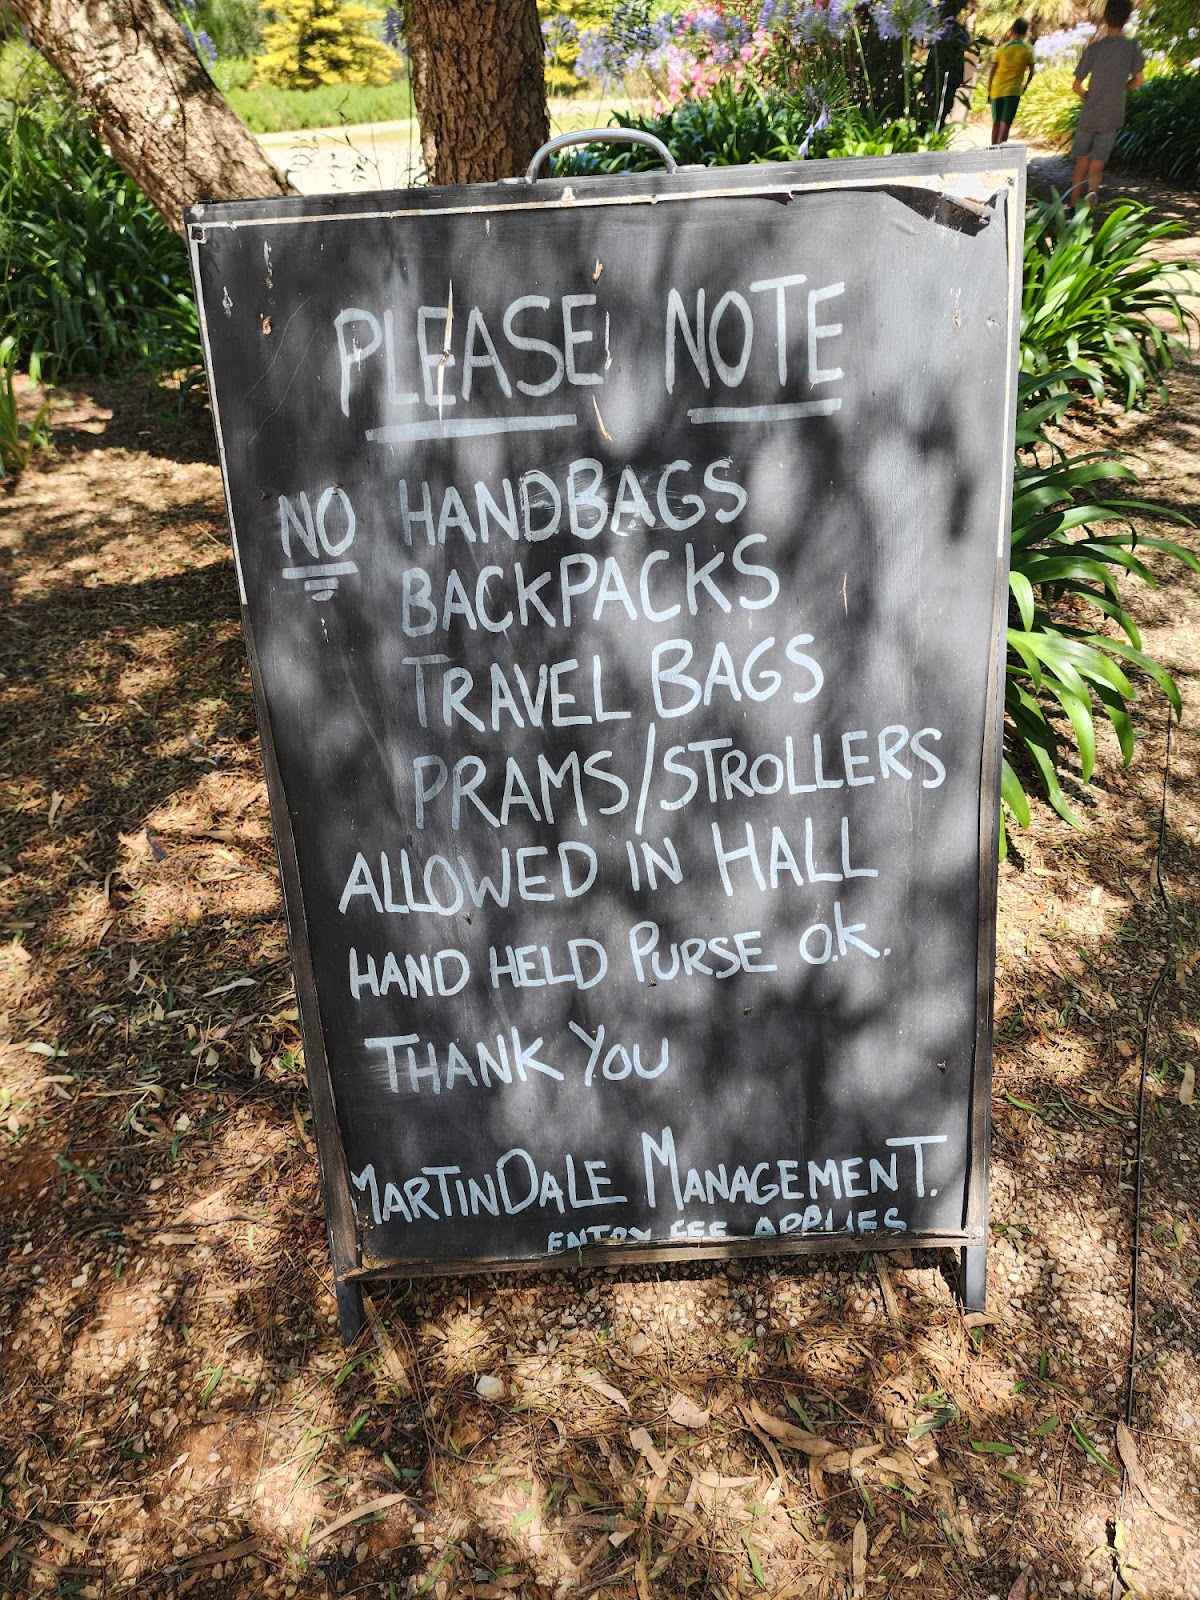 PLEASE NOTE
NO HANDBAGS
BACKPACKS
TRAVEL BAGS
PRAMS/STROLLERS
ALLOWED IN HALL
HAND HELD PURSE O.K.
THANK YOU
MARTINDALE MANAGEMENT.
ENTRY FEE APPLIES